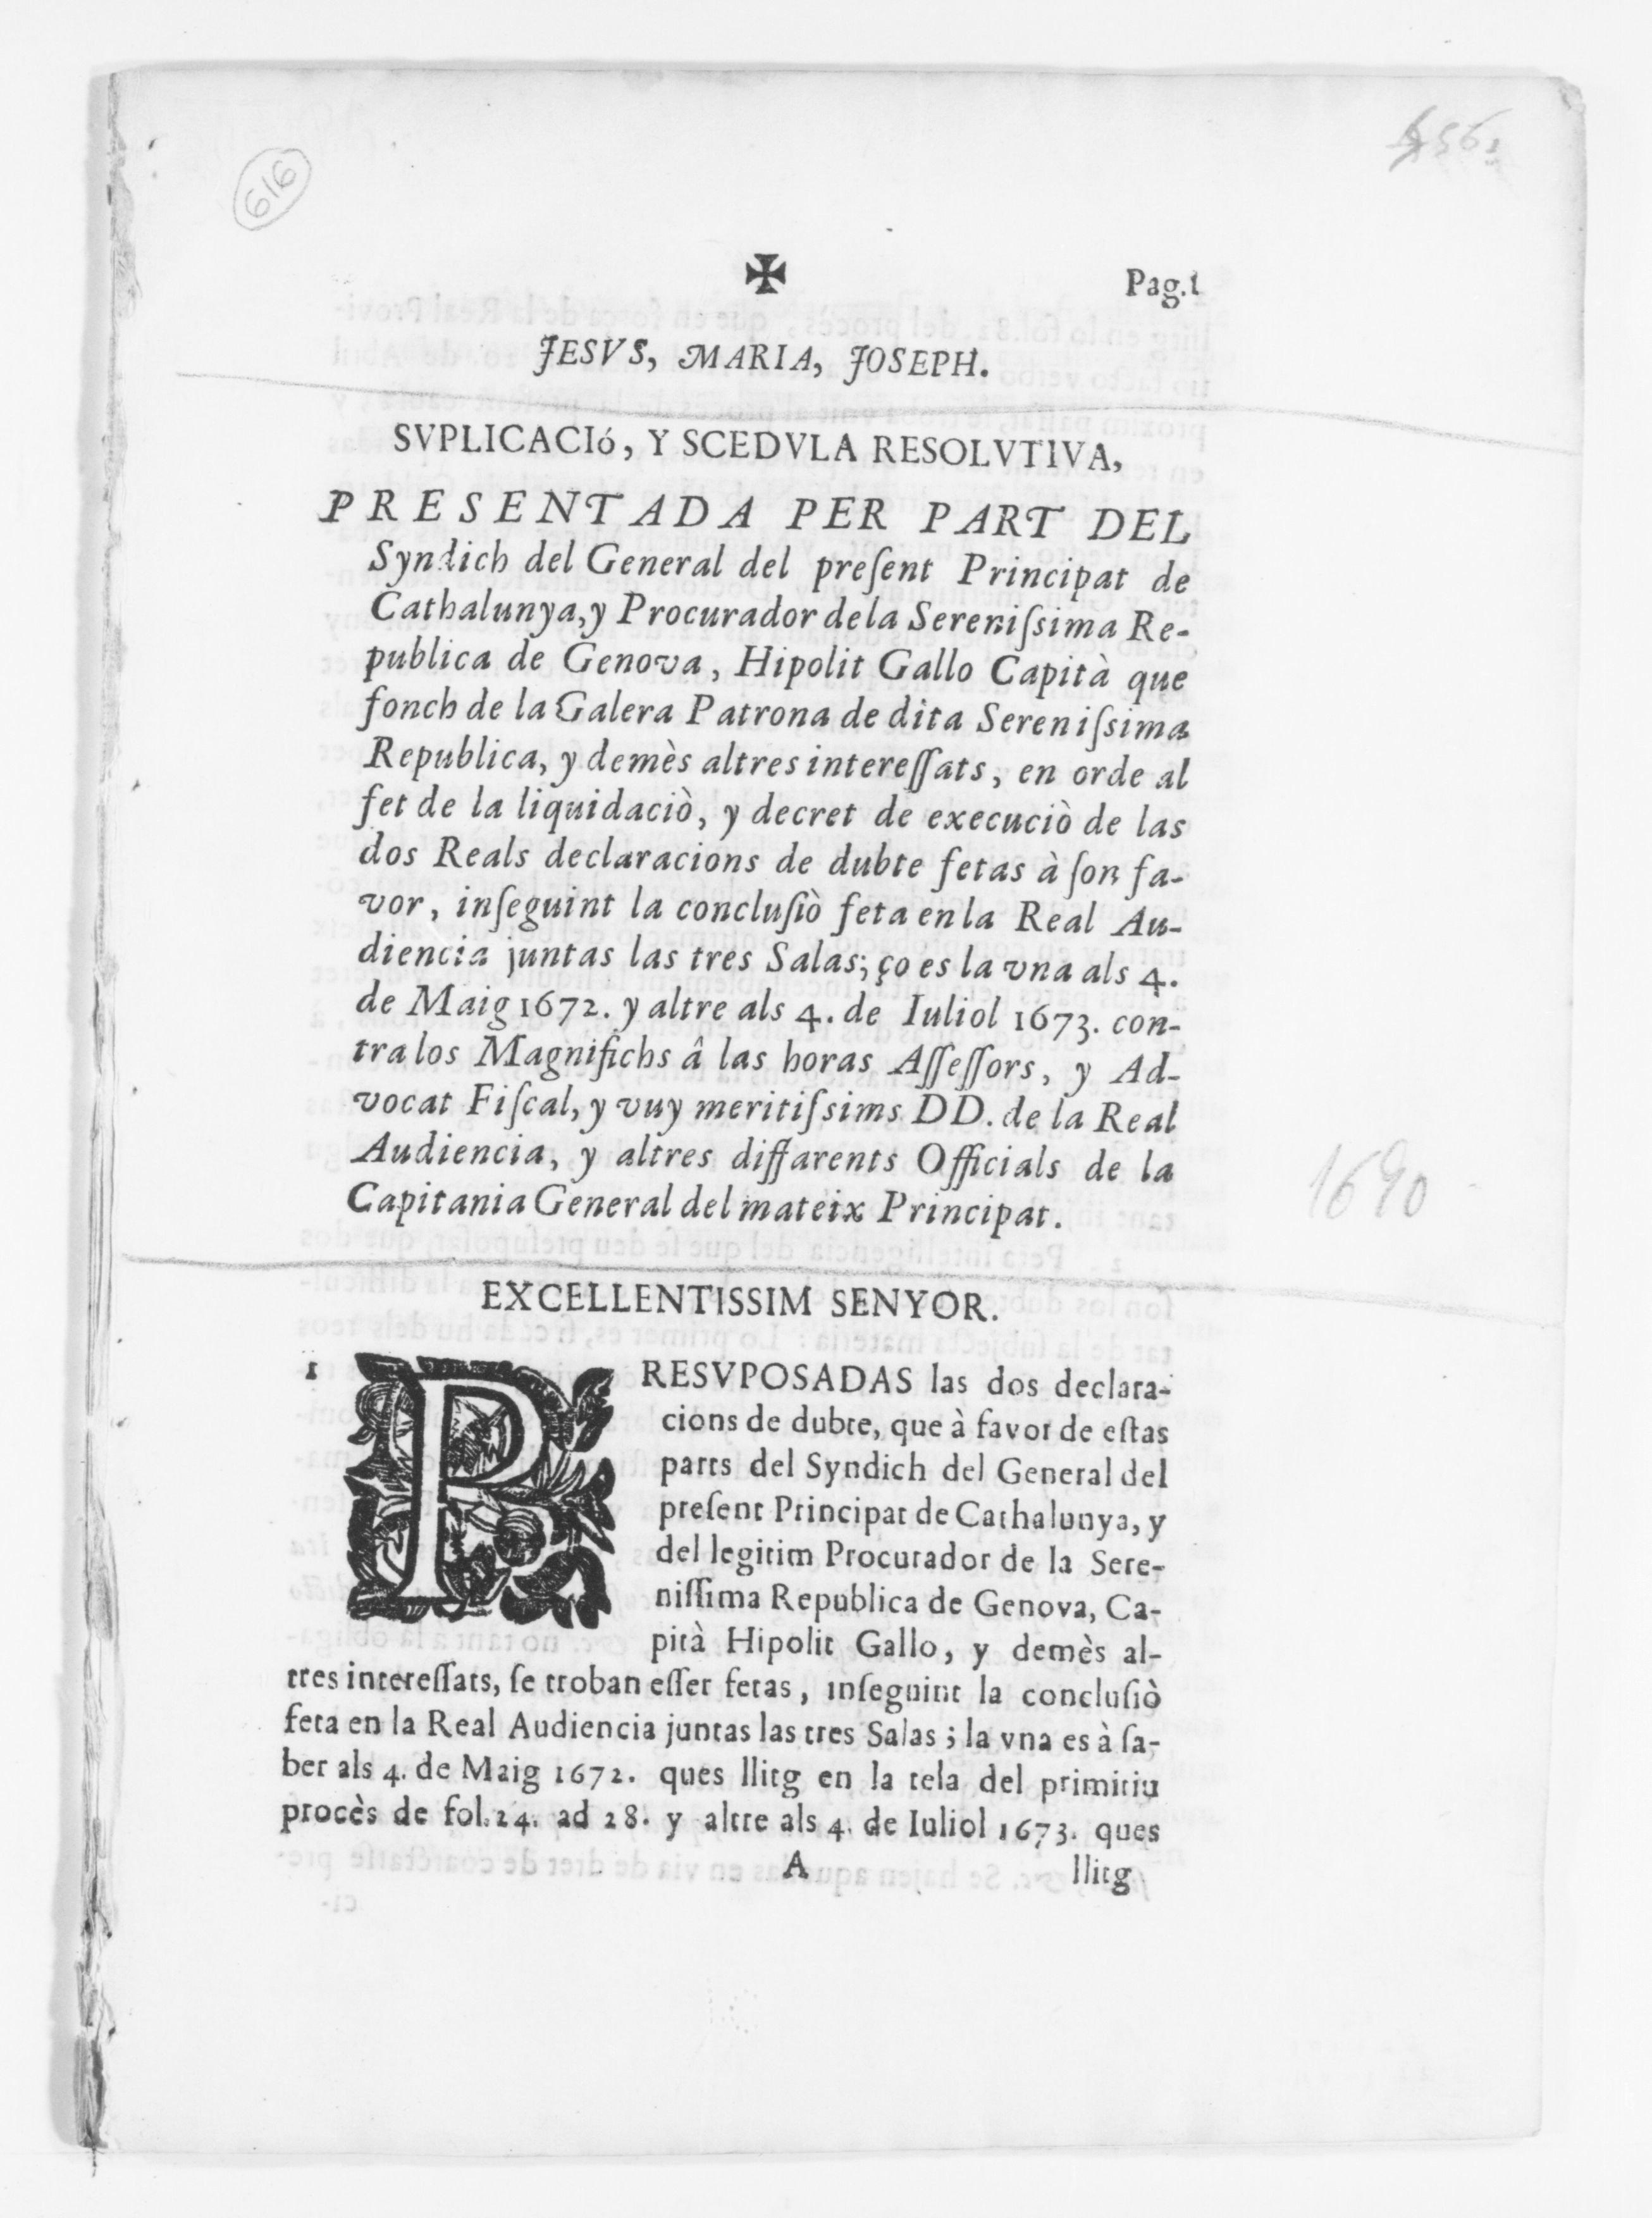 616
✠
Pag.1
JESVS, MARIA, JOSEPH.
SVPLICACIó, Y SCEDVLA RESOLVTIVA,
PRESENTADA PER PART DEL
Syndich del General del preſent Principat de
Cathalunya, y Procurador dela Sereniſsima Re-
publica de Genova, Hipolit Gallo Capità que
fonch de la Galera Patrona de dita Sereniſsima
Republica, y demès altres intereſſats, en orde al
fet de la liquidaciò, y decret de execuciò de las
dos Reals declaracions de dubte fetas à ſon fa-
vor, inſeguint la concluſiò feta en la Real Au-
diencia juntas las tres Salas; ço es la vna als 4.
de Maig 1672. y altre als 4. de Iuliol 1673. con-
tra los Magnifichs â las horas Aſſeſſors, y Ad-
vocat Fiſcal, y vuy meritiſsims DD. de la Real
Audiencia, y altres differents Officials de la
Capitania General del mateix Principat.
1690
EXCELLENTISSIM SENYOR.
1 PRESVPOSADAS las dos declara-
cions de dubte, que à favor de eſtas
parts del Syndich del General del
preſent Principat de Cathalunya, y
del legitim Procurador de la Sere-
niſſima Republica de Genova, Ca-
pità Hipolit Gallo, y demès al-
tres intereſſats, ſe troban eſſer fetas, inſeguint la concluſiò
feta en la Real Audiencia juntas las tres Salas; la vna es à ſa-
ber als 4. de Maig 1672. ques llitg en la tela del primitiu
procès de fol.24. ad 28. y altre als 4. de Iuliol 1673. ques
A llitg